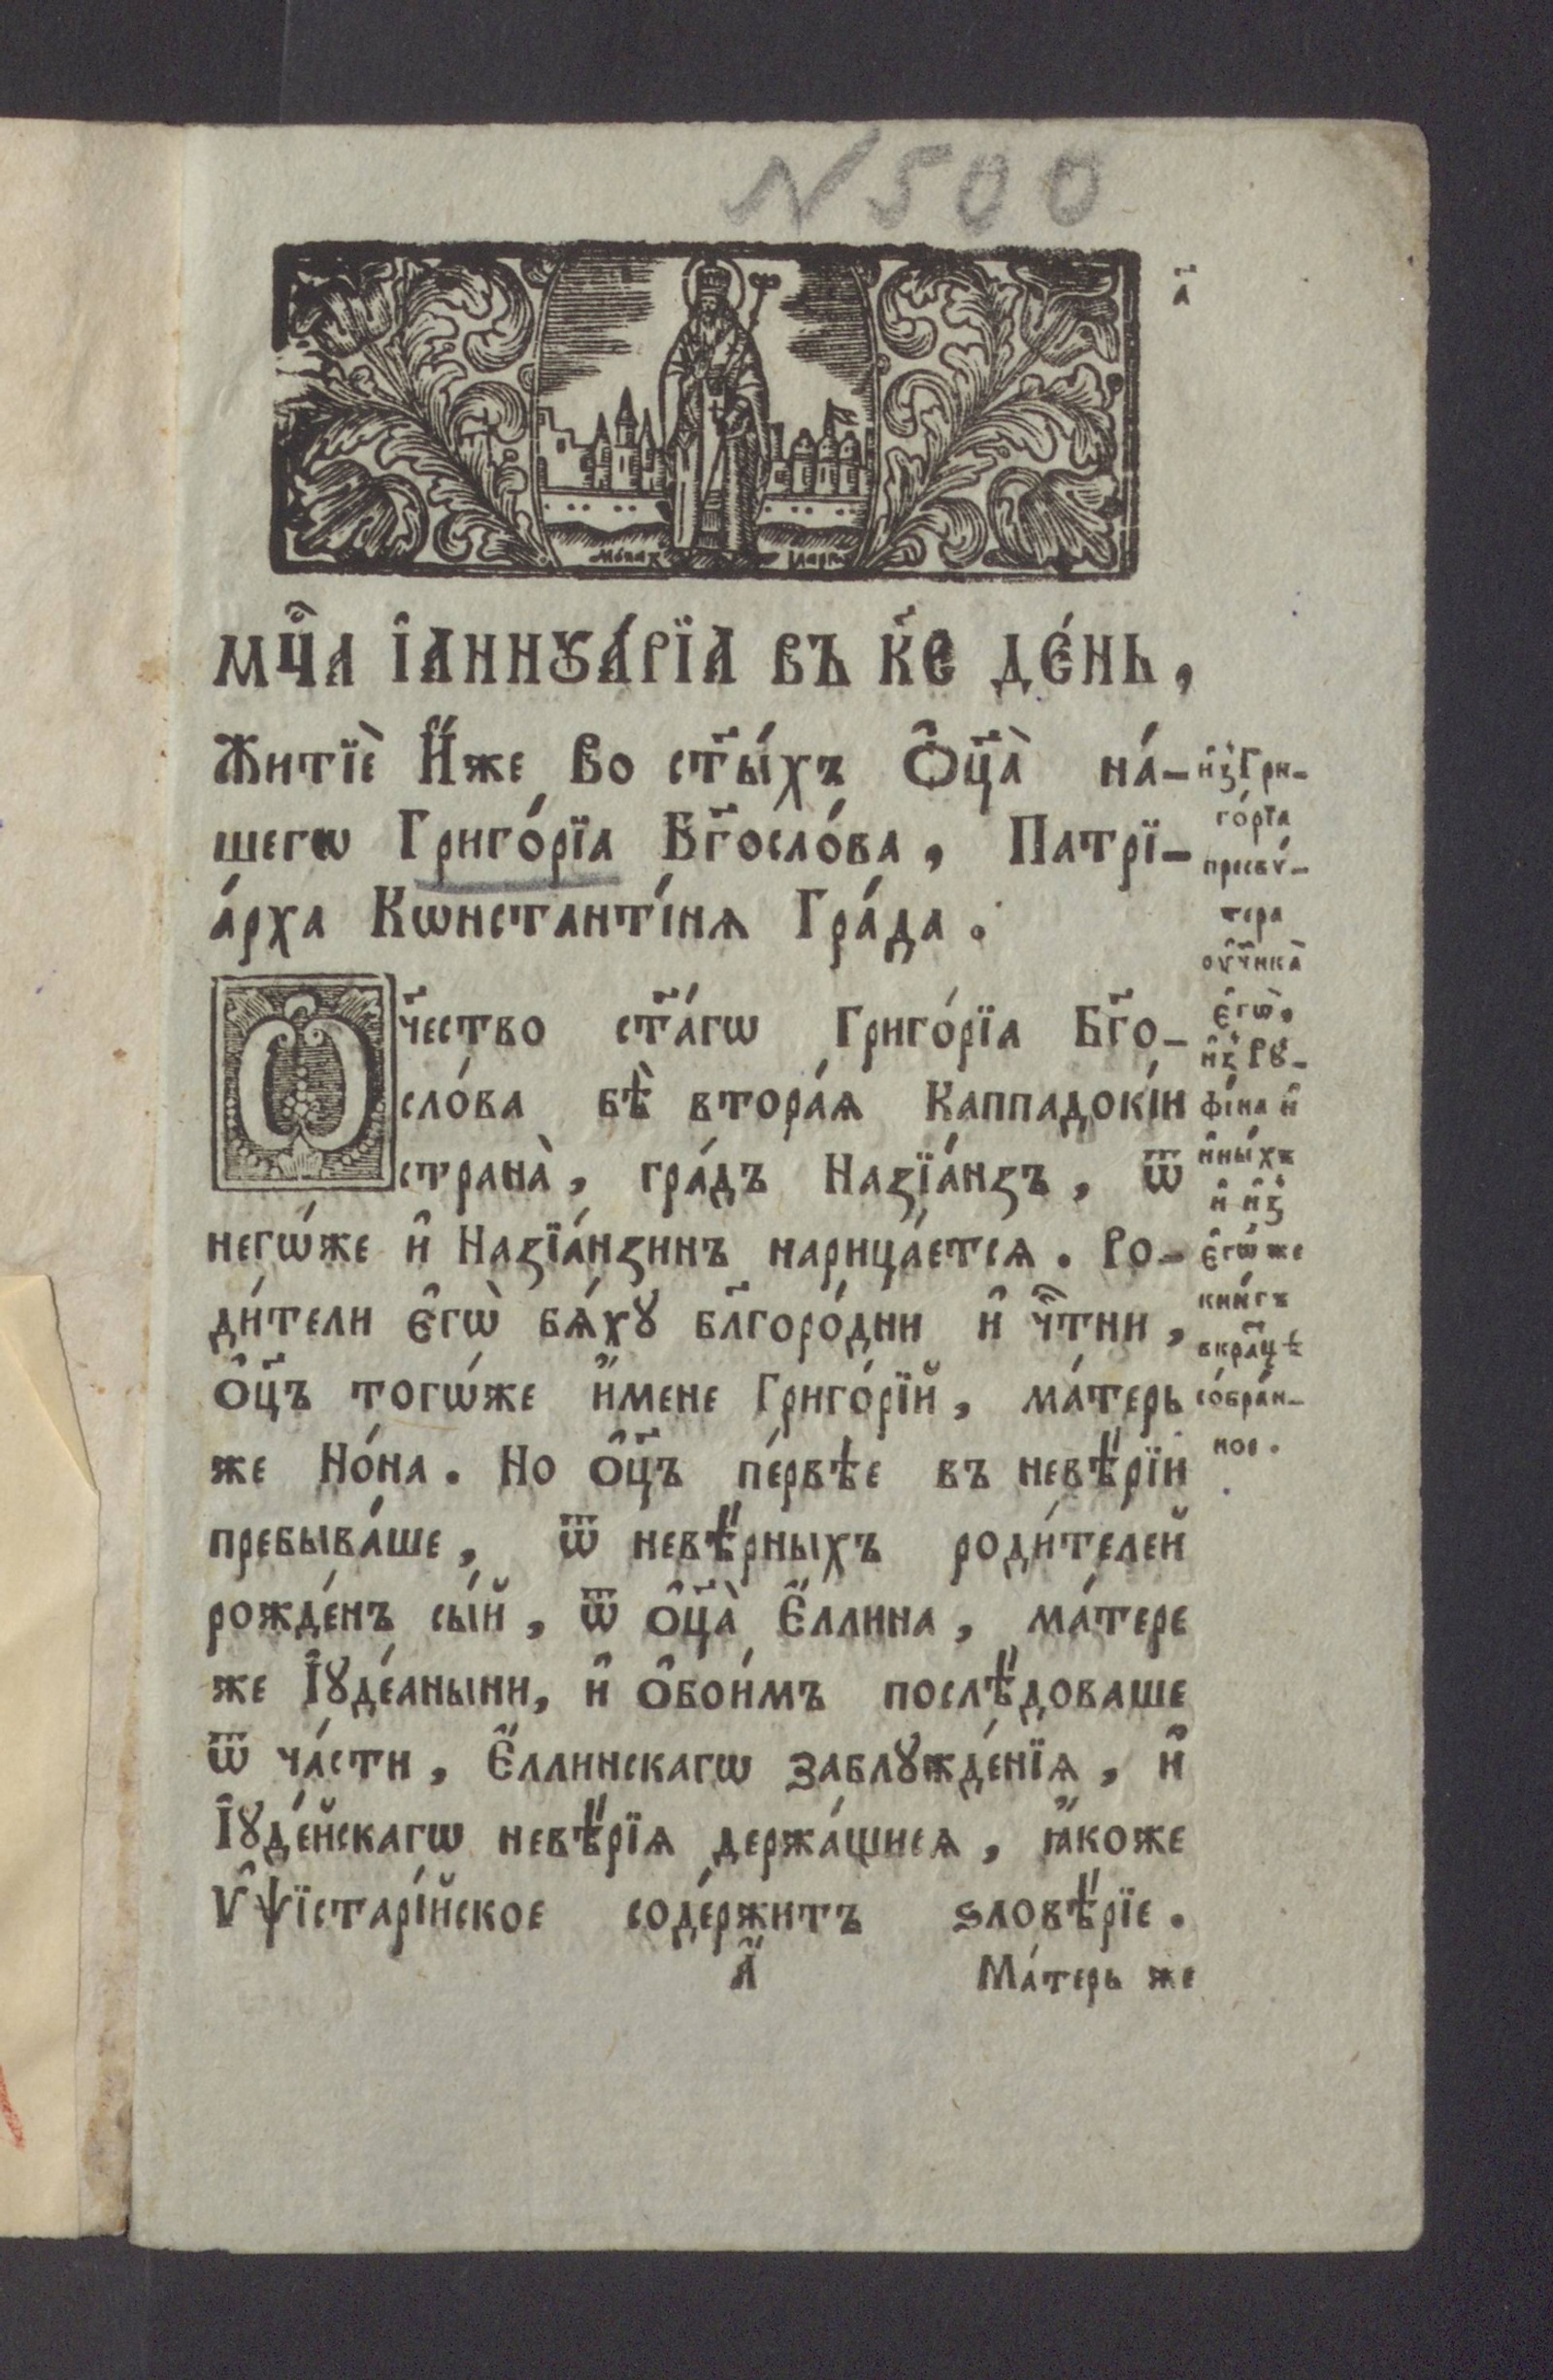 N 500
а҃
Мц҃а і҆аннꙋа́рїа въ к҃е де́нь,
Житїѐ И҆́же во ст҃ы́хъ Ѻ҆ц҃а̀ на́-
шегѡ Григо́рїа Бг҃осло́ва, Патрї-
а́рха Кѡнстанті́нѧ Гра́да.
Ѻч҃ество ст҃а́гѡ Григо́рїа Бг҃о-
сло́ва бѣ̀ втора́ѧ Каппадокі́и
страна̀, гра́дъ Назїа́нзъ, ѿ
негѡ́же и҆ Назїа́нзинъ нарица́етсѧ. Ро-
ди́тели є҆гѡ̀ бѧ́хꙋ бл҃горо́дни и҆ чⷭ҇тни,
ѻ҆ц҃ъ тогѡ́же и҆́мене Григо́рїй, ма́терь
же Но́на. Но ѻ҆ц҃ъ пе́рвѣе въ невѣ́рїи
пребыва́ше, ѿ невѣ́рныхъ роди́телей
рожде́нъ сы́й, ѿ ѻ҆ц҃а̀ Є҆́ллина, ма́тере
же І҆ꙋде́аныни, и҆ ѻ҆бои́мъ послѣ́доваше
ѿ ча́сти, Є҆́ллинскагѡ заблꙋжде́нїѧ, и҆
І҆ꙋде́йскагѡ невѣ́рїѧ держа́щисѧ, ꙗ҆́коже
Ѵ҆ѱїстарі́йское соде́ржитъ ѕловѣ́рїе.
А҆҃
Ма́терь же
и҆з̾ Гри-
го́рїа
пресвѵ́-
тера
оу҆ч҃нка̀
є҆гѡ̀,
и҆з̾ Рꙋ-
фі́на и҆
и҆ны́хъ
и҆ и҆з̾
є҆гѡ́же
кни́гъ
вкра́цѣ
со́бран-
ное.